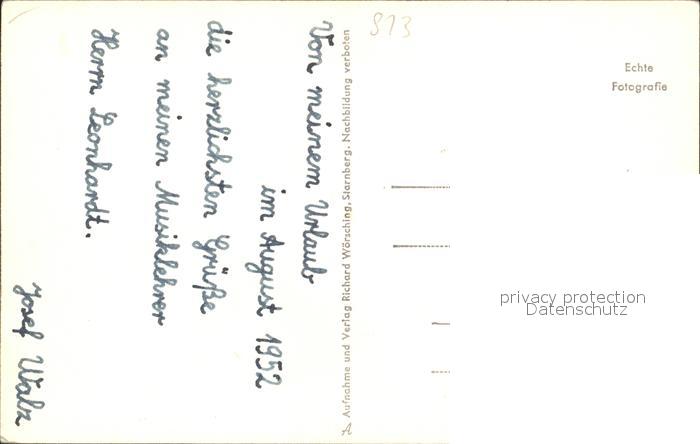 Von meinem Urlaub
im August 1952
die herzlichsten Grüße
an meinen Musiklehrer
Herrn Leonhardt.
Josef Walz
Aufnahme und Verlag Richard Wörsching, Starnberg. Nachbildung verboten
A
813
Echte
Fotografie
privacy protection
Datenschutz